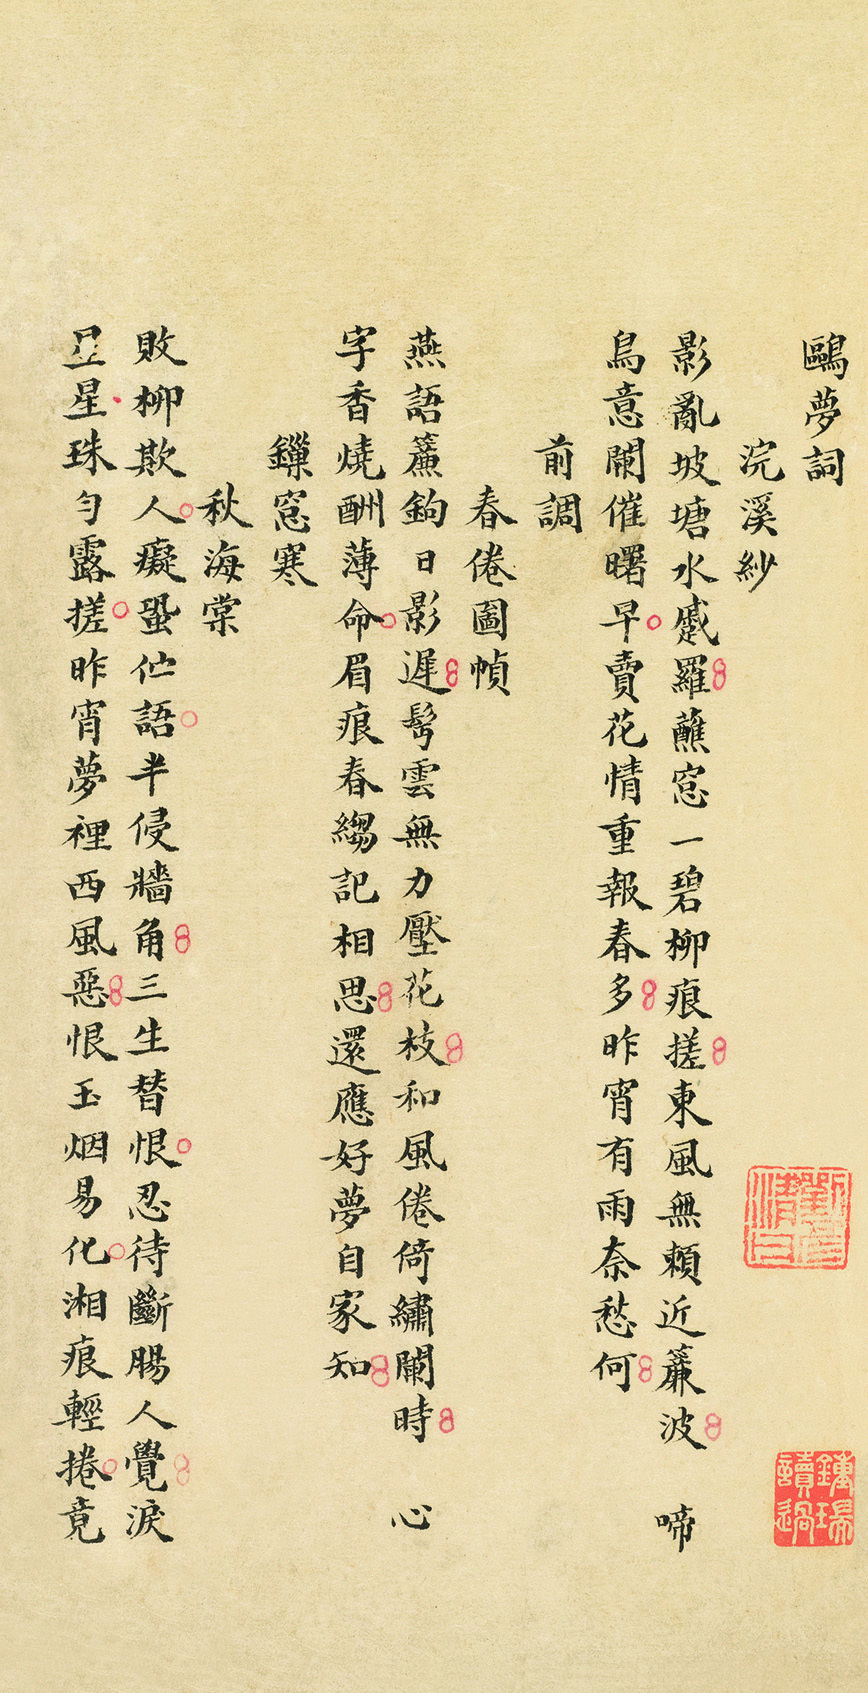 鷗夢詞
浣溪紗
影亂坡塘水蹙羅蘸窓一碧柳痕搓東風無賴近簾波 啼
鳥意闌催曙早賣花情重報春多昨宵有雨奈愁何
前調
春倦圖幀
燕語簾鉤日影遲鬌雲無力壓花枝和風倦倚繡闌時 心
字香燒酬薄命眉痕春縐記相思還應好夢自家知
鏁窓寒
秋海棠
敗柳欺人癡蛩伫語半侵牆角三生替恨忍待斷腸人覺淚
星珠勻露搓昨宵夢裡西風惡恨玉烟易化湘痕輕捲竟
鍾瑞讀過